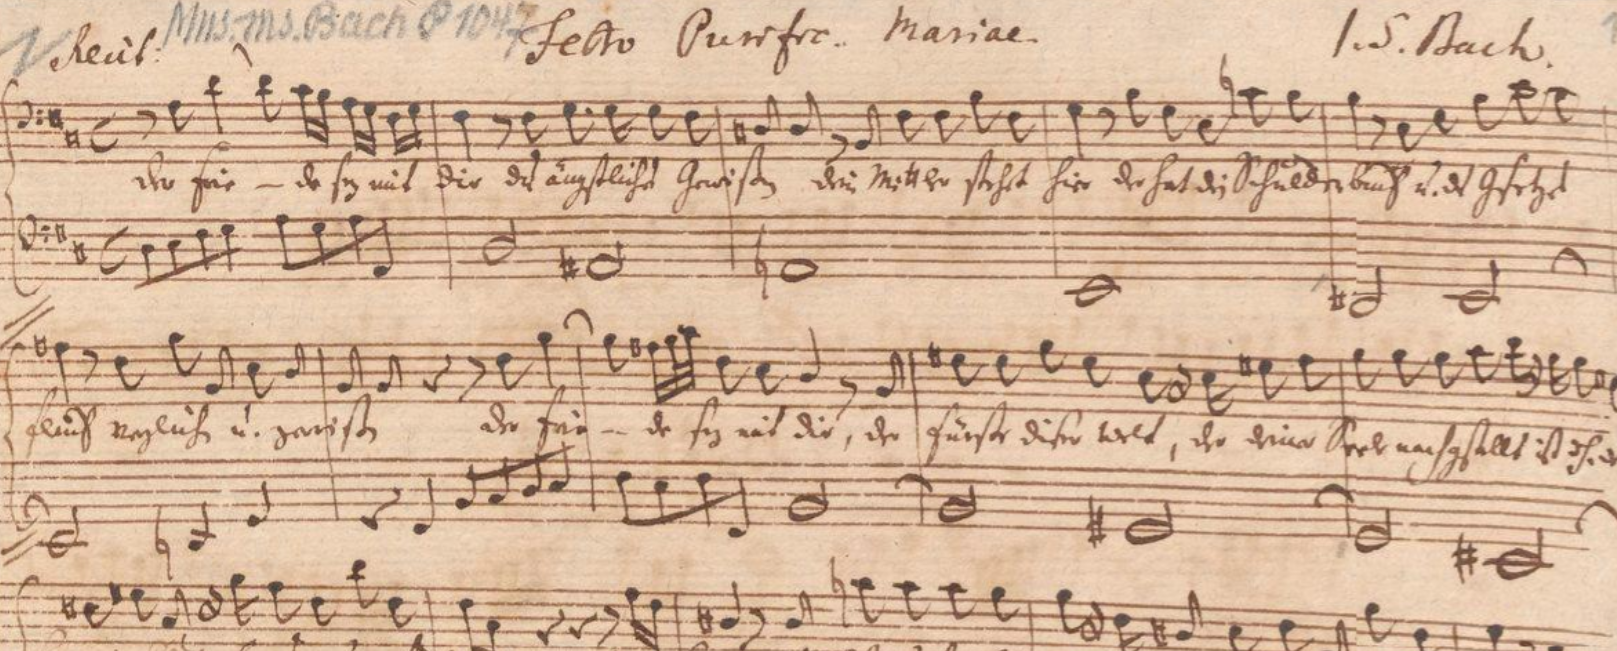 Mus. ms. Bach P 1047
Recit: Festo Purific. Mariae. I. S. Bach.
der frie - de sey mit dir du ängstliches Gewißen dein Mittler steht hier der hat dein Schulden buch u. des Gesetzes
fluch verglichen u. zerrißen der frie - de sey mit dir, der fürste dieser welt, der deiner Seele nachgestellt ist